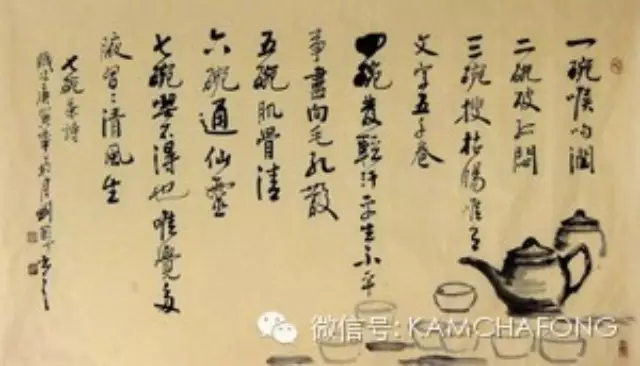 一碗喉吻潤
二碗破孤悶
三碗搜枯腸惟有
文字五千卷
四碗發輕汗平生不平
事盡向毛孔散
五碗肌骨清
六碗通仙靈
七碗喫不得也唯覺兩
腋習々清風生
七碗茶詩
庚寅年
微信号: KAMCHAFONG